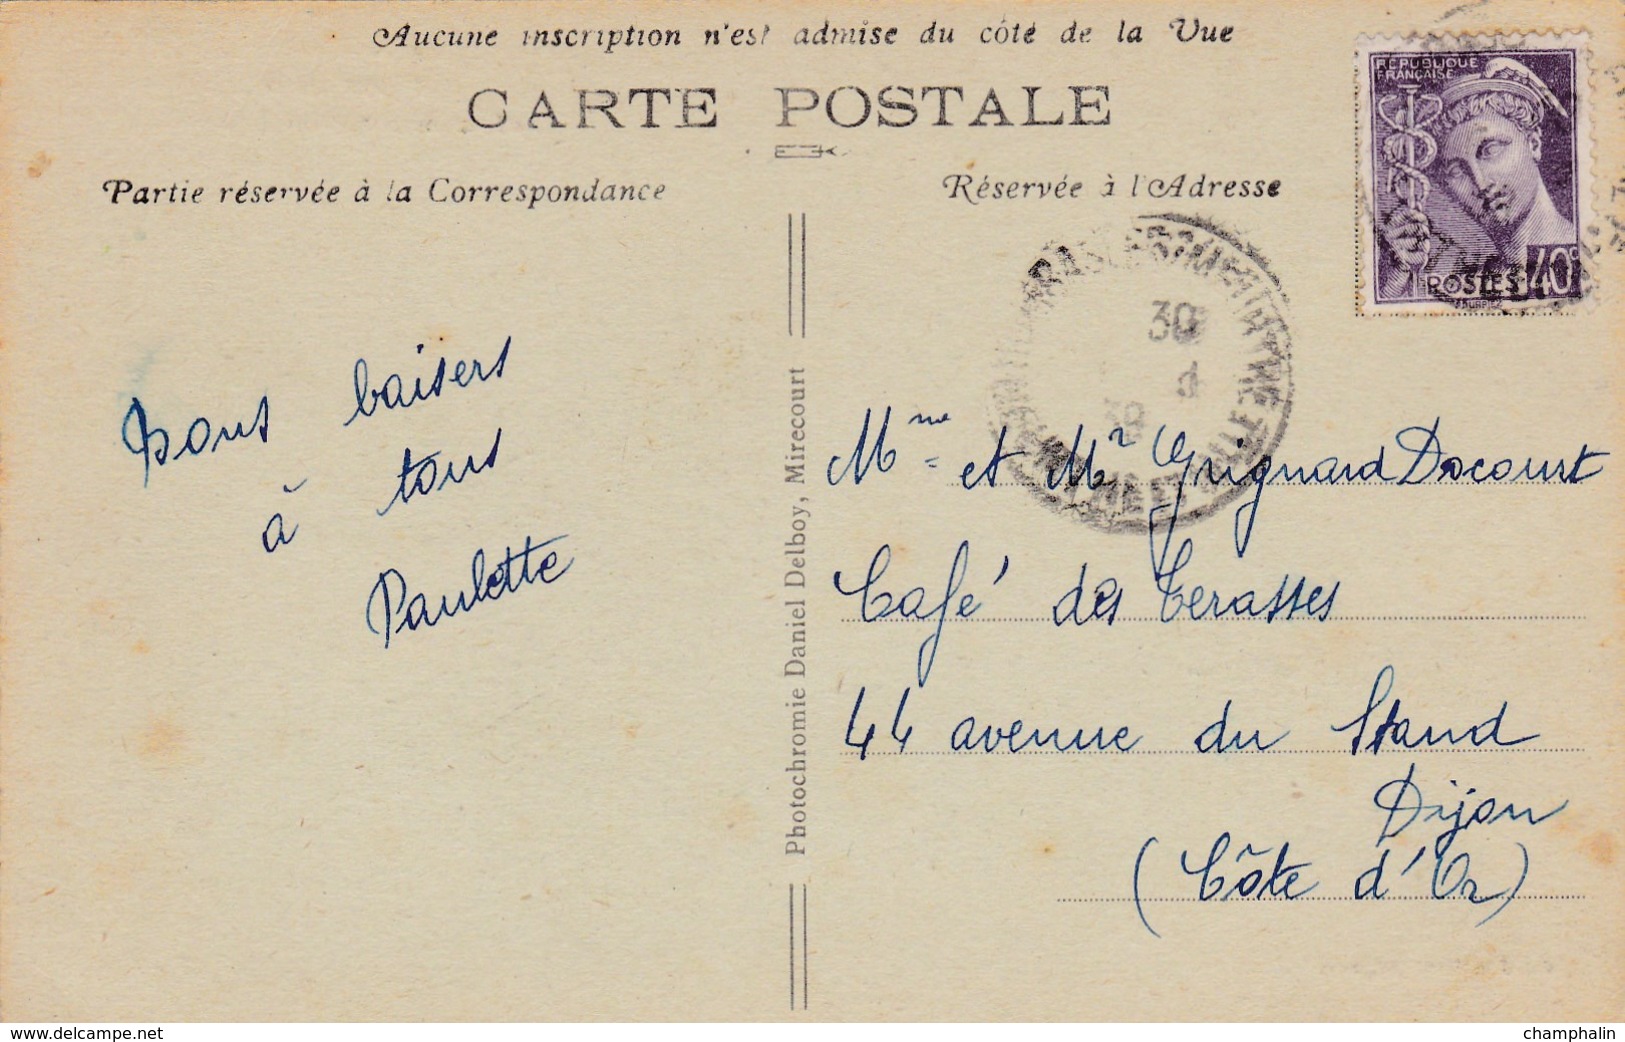 Aucune inscription n'est admise du côté de la Vue
CARTE POSTALE
Partie réservée à la Correspondance
Réservée à l'Adresse
REPUBLIQUE
FRANÇAISE
POSTES 40c
30
39
Bons baisers
à tous
Paulette
Photochromie Daniel Delboy, Mirecourt
Mme et Mr Grignard Docourt
Café des Terasses
44 avenue du Stand
Dijon
(Côte d'Or)
www.delcampe.net
champhalin